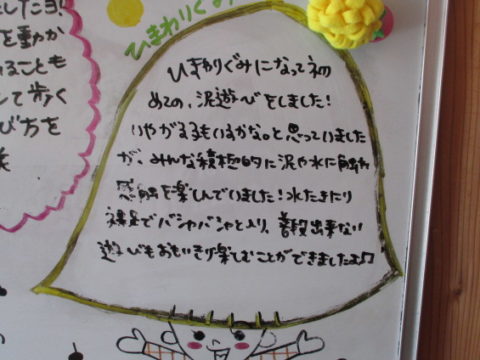 したヨ!
を動か
ることも
して歩く
び方を
ひまわりぐみ
ひまわりぐみになって初
めての、泥遊びをしました!
いやがる子もいるかな。と思っていました
が、みんな積極的に泥や水に触れ
感触を楽しんでいました!水たまり
裸足でバシャバシャと入り、普段出来ない
遊びもおもいきり楽しむことができましたよ♫